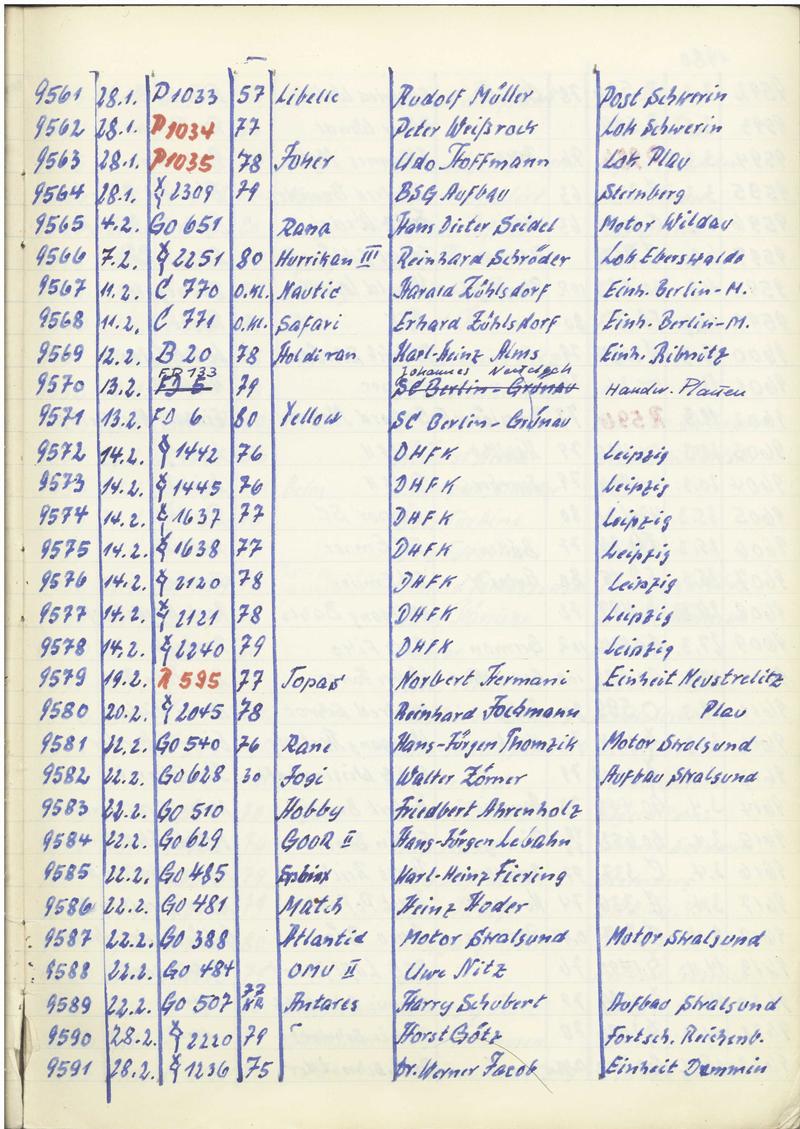 9561 28.1. P 1033 57 Libelle Rudolf Müller Post Schwerin
9562 28.1. P 1034 77 Peter Weißrock Lok Schwerin
9563 28.1. P 1035 78 Joker Udo Hoffmann Lok. Plau
9564 28.1. 2309 79 BSG Aufbau Sternberg
9565 4.2. GO 651 Rana Hans Dieter Seidel Motor Wildau
9566 7.2. 2251 80 Hurrikan III Reinhard Schröder Lok Eberswalde
9567 11.2. C 770 o.Kl. Nautic Harald Zühlsdorf Einh. Berlin-M.
9568 11.2. C 771 o.Kl. Safari Erhard Zühlsdorf Einh. Berlin-M.
9569 12.2. B 20 78 Karl-Heinz Alms Einh. Ribnitz
FD 133 Johannes
9570 13.2. FD 5 79 SC Berlin-Grünau Handw. Plauen
9571 13.2. FD 6 80 Yellow SC Berlin-Grünau
9572 14.2. 1442 76 DHFK Leipzig
9573 14.2. 1445 76 DHFK Leipzig
9574 14.2. 1637 77 DHFK Leipzig
9575 14.2. 1638 77 DHFK Leipzig
9576 14.2. 2120 78 DHFK Leipzig
9577 14.2. 2121 78 DHFK Leipzig
9578 14.2. 2240 79 DHFK Leipzig
9579 19.2. R 595 77 Topas Norbert Hermani Einheit Neustrelitz
9580 20.2. 2045 78 Reinhard Jochmann Plau
9581 22.2. GO 540 76 Rane Hans-Jürgen Thomzik Motor Stralsund
9582 22.2. GO 628 30 Jogi Walter Zörner Aufbau Stralsund
9583 22.2. GO 510 Hobby Friedbert Ahrenholz
9584 22.2. GO 629 GOOR II Hans-Jürgen Lebahn
9585 22.2. GO 485 Sphinx Karl-Heinz Fiering
9586 22.2. GO 481 Match Heinz Huder
9587 22.2. GO 388 Atlantid Motor Stralsund Motor Stralsund
9588 22.2. GO 484 OMU II Uwe Nitz
9589 22.2. GO 507 77 KR Antares Harry Schubert Aufbau Stralsund
9590 28.2. 2220 79 Horst Götz Fortsch. Reichenb.
9591 28.2. 1236 75 Dr. Werner Jacob Einheit Demmin